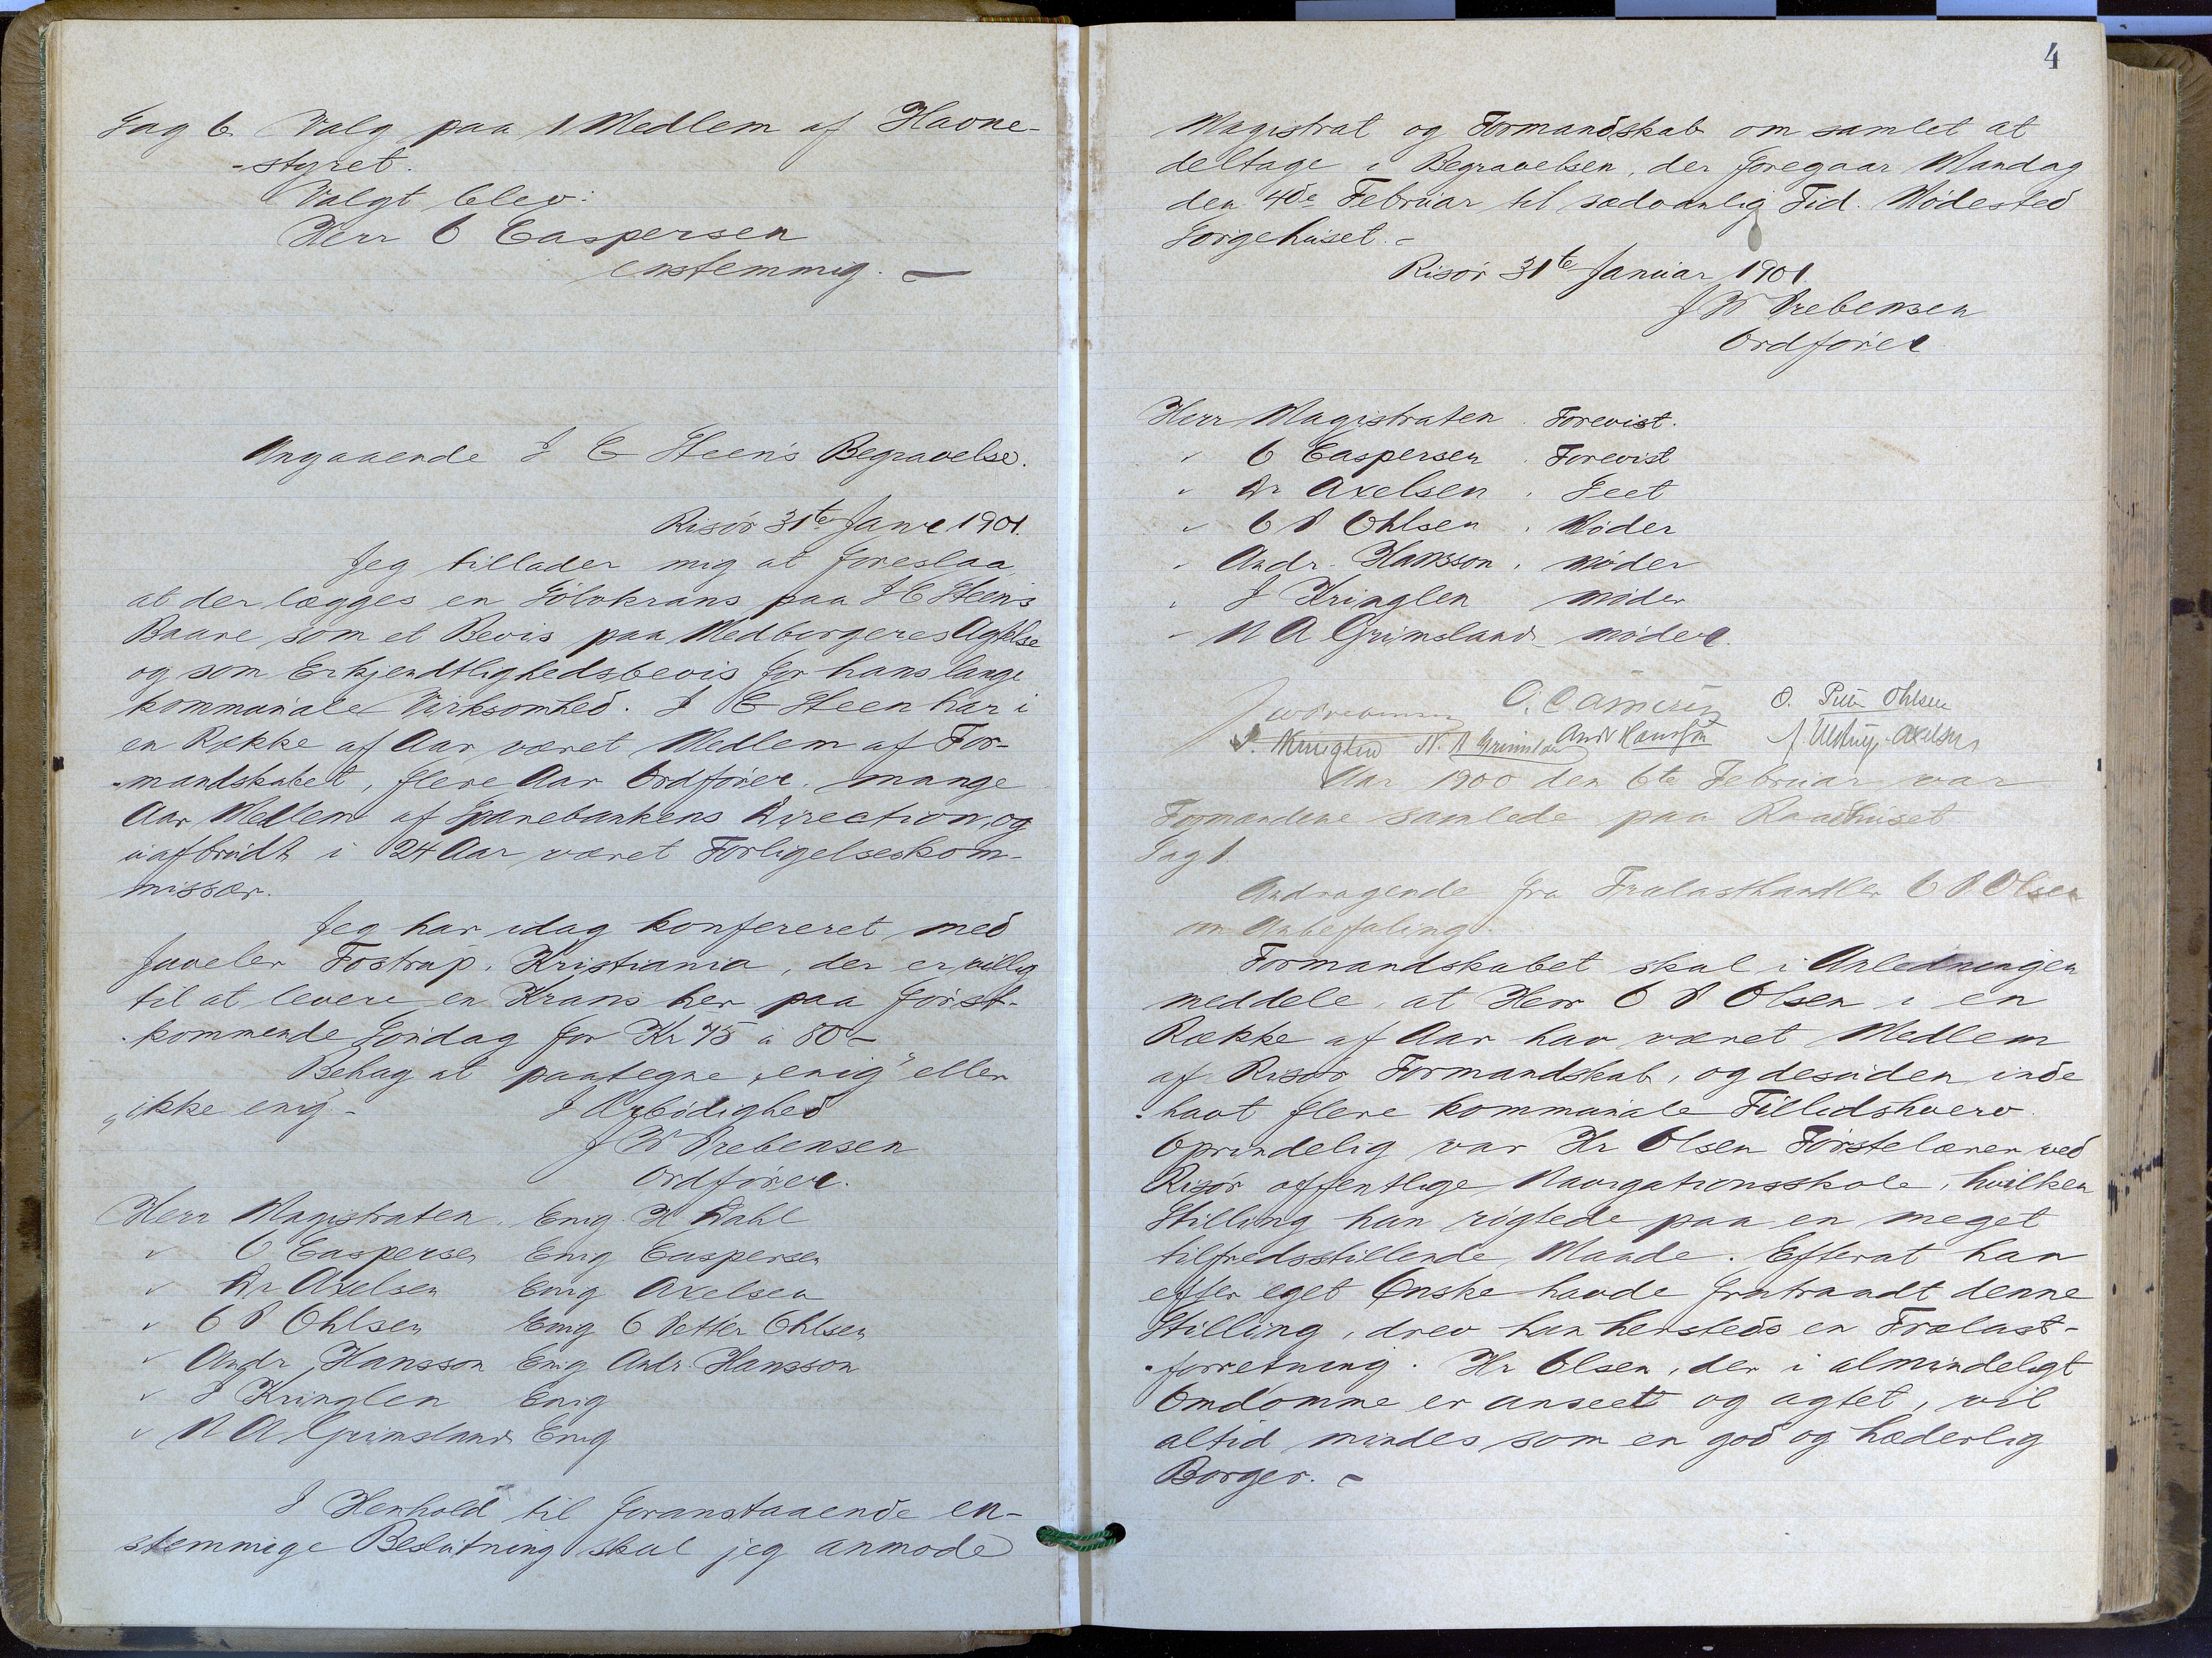 Sag 6. Valg paa 1 Medlem af Havne-
-styret.
Valgt blev:
Herr O Caspersen
enstemmig. —
Angaaende J C Steen's Begravelse.
Risør 31te Janr 1901.
Jeg tillader mig at foreslaa
at der lægges en Sølvkrans paa J C Steen's
Baare som et Bevis paa Medborgeres Agtelse
og som Erkjendtlighedsbevis for hans lange
kommunale Virksomhed. J C Steen har i
en Række af Aar været Medlem af For-
-mandskabet, flere Aar Ordfører, mange
Aar Medlem af Sparebankens Direction, og
uafbrudt i 24 Aar været Forligelseskom-
missær.
Jeg har idag konfereret med
Juveler Tostrup, Kristiania, der er villig
til at levere en Krans her paa først-
-kommende Søndag for Kr 75 à 80 –
Behag at paategne „enig" eller
„ikke enig –
I Ærbødighed
J W Prebensen
Ordfører.
Herr Magistraten. Enig. H Dahl
" O Caspersen Enig Caspersen
" Dr Axelsen Enig Axelsen
" O P Ohlsen Enig O Petter Ohlsen
" Andr Hansson Enig Andr. Hansson
" J Kringlen Enig
" N A Grimsland Enig
I Henhold til foranstaaende en-
stemmige Beslutning skal jeg anmode
4
Magistrat og Formandskab om samlet at
deltage i Begravelsen, der foregaar Mandag
den 4de Februar til sædvanlig Tid. Mødested
Sørgehuset. –
Risør 31te Januar 1901
J W Prebensen
Ordfører
Herr Magistraten. Forevist.
" O Caspersen. Forevist
" Dr Axelsen. Seet
" O P Ohlsen. Møder
" Andr. Hansson. møder
" J Kringlen møder
" N A Grimsland møder.
J W Prebensen O. Caspersen O. Petter Ohlsen
J. Kringlen N. A Grimsland Andr Hansson Axelsen
Aar 1900 den 6te Februar var
Formændene samlede paa Raadhuset
Sag 1
Andragende fra Trælasthandler O P Olsen
om Anbefaling.
Formandskabet skal i Anledningen
meddele, at Herr O P Olsen i en
Række af Aar har været Medlem
af Risør Formandskab, og desuden inde
-havt flere kommunale Tillidshverv.
Oprindelig var Hr Olsen Førstelærer ved
Risør offentlige Navigationsskole, hvilken
Stilling han røgtede paa en meget
tilfredsstillende Maade. Efterat han
efter eget Ønske havde fratraadt denne
Stilling, drev han hersteds en Trælast-
-forretning. Hr Olsen, der i almindeligt
Omdømme er anseet og agtet, vil
altid mindes som en god og hæderlig
Borger. –